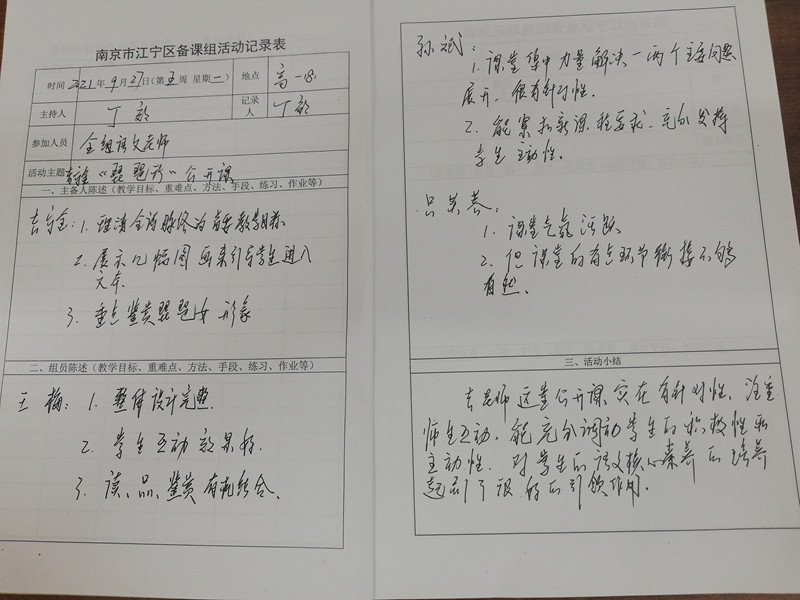 南京市江宁区备课组活动记录表
时间 2021年9月27日(第五周 星期一) 地点 高一18
主持人 丁 记录人 丁
参加人员 全组语文老师
活动主题 《琵琶行》公开课
一、主备人陈述(教学目标、重难点、方法、手段、练习、作业等)
1. 理清全诗脉络为首要教学目标
2. 展示几幅图画来引导学生进入
文本
3. 重点鉴赏琵琶女形象
二、组员陈述(教学目标、重难点、方法、手段、练习、作业等)
王梅:1. 整体设计完整.
2. 学生互动效果好.
3. 读、品、鉴赏有机结合、
孙斌:
1. 课堂集中力量解决一两个主要问题
展开、很有针对性.
2. 能紧扣新课程要求、充分发挥
学生主动性。
1. 课堂气氛活跃
2. 但课堂的有点环节衔接不够
有些、
三、活动小结
吉老师这堂公开课,实在有针对性,注重
师生互动、能充分调动学生的积极性和
主动性. 对学生的语文核心素养的培养
起到了很好的引领作用.